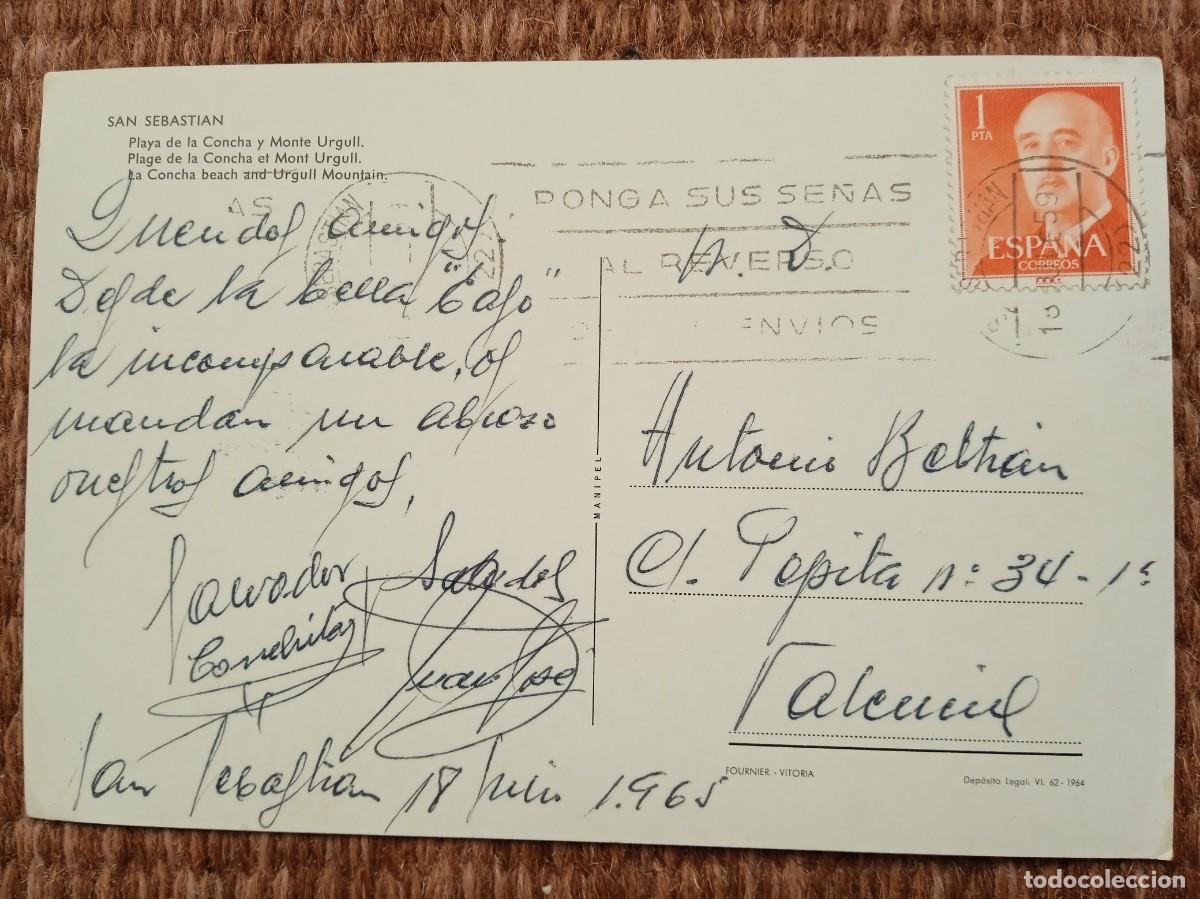 SAN SEBASTIAN
Playa de la Concha y Monte Urgull.
Plage de la Concha et Mont Urgull.
La Concha beach and Urgull Mountain.
Queridos amigos.
Desde la bella "Easo"
la incomparable, os
mandan un abrazo
vuestros amigos,
Salvador
Conchita
Saludos
Juan José
San Sebastian 18 Julio 1.965
MANIPEL
PONGA SUS SEÑAS
AL REVERSO
ENVIOS
1
PTA
ESPAÑA
CORREOS
Antonio Beltrán
C/. Pepita nº 34 - 1ª
Valencia
FOURNIER. - VITORIA
Depósito Legal: VI. 62 - 1964
todocoleccion